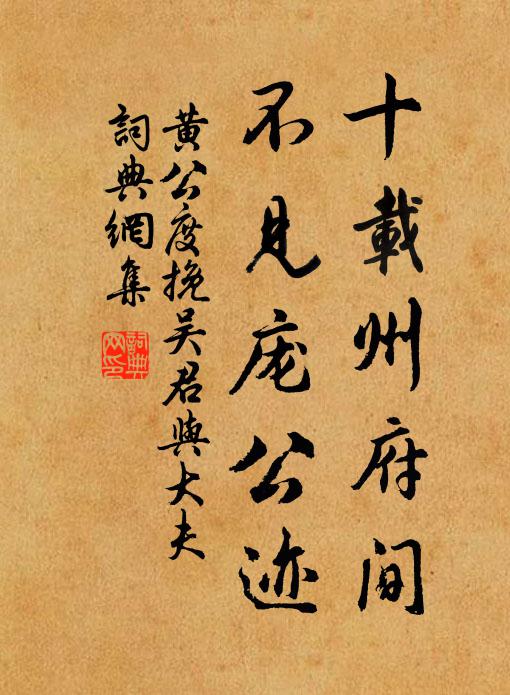 十載州府間
不見庞公迹
黄公度挽吴君與大夫
詞典網集
詞典
网印